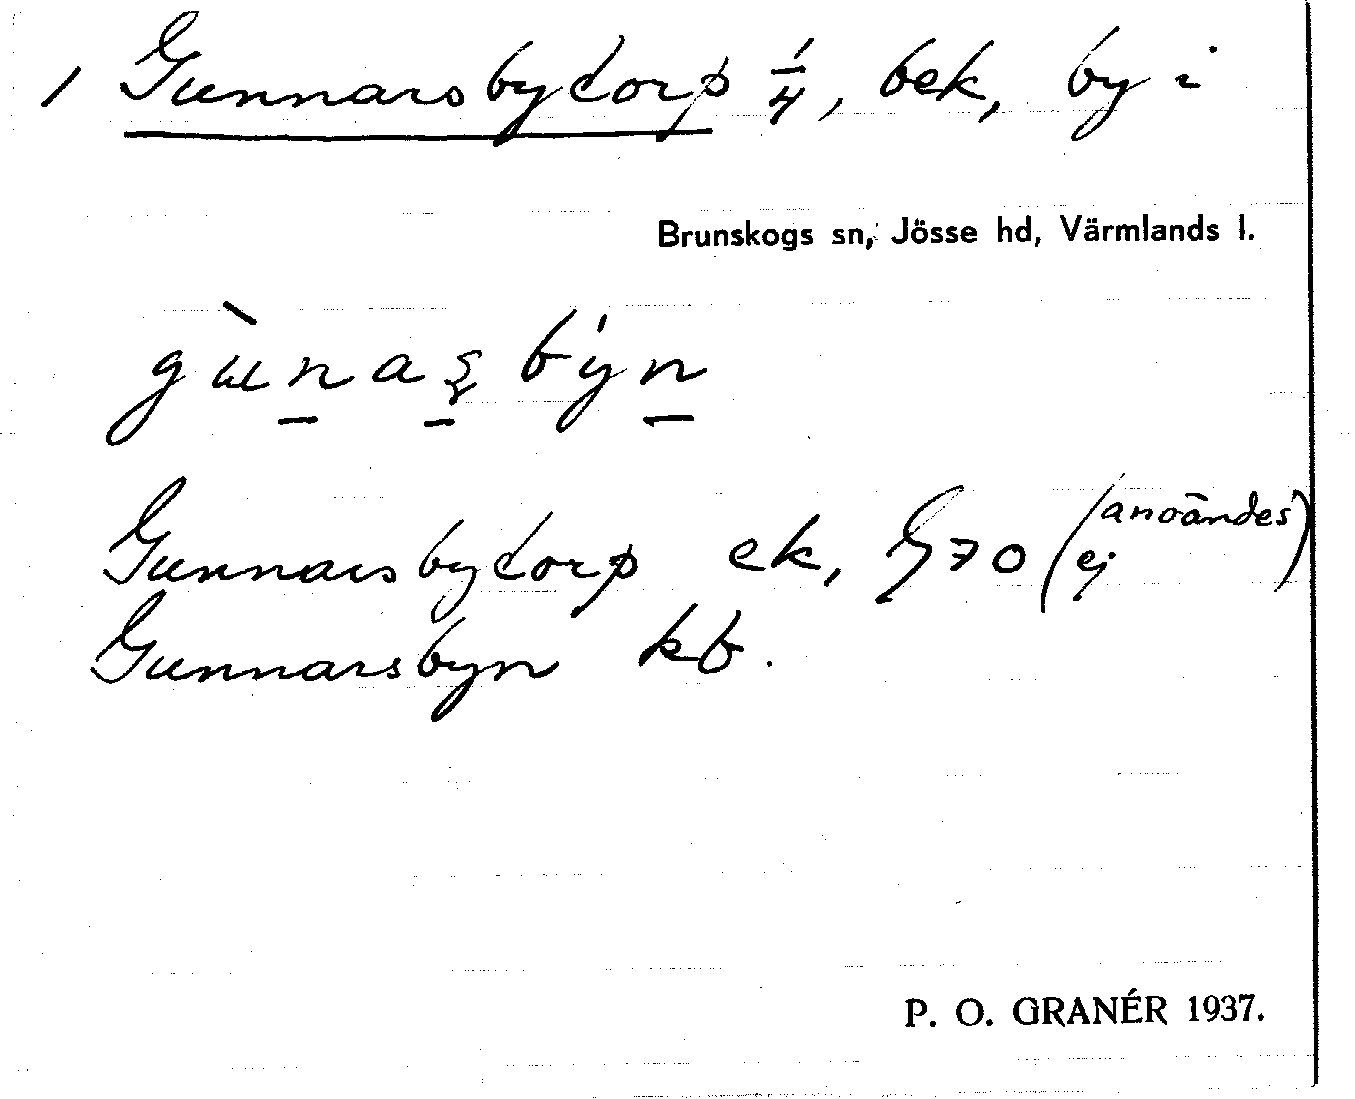 / Gunnarsbytorp 1/4, bek, by i
Brunskogs sn, Jösse hd, Värmlands l.
gùnaʂbýn
Gunnarsbytorp ek, G70 (användes ej)
Gunnarsbyn kb.
P. O. GRANÉR 1937.